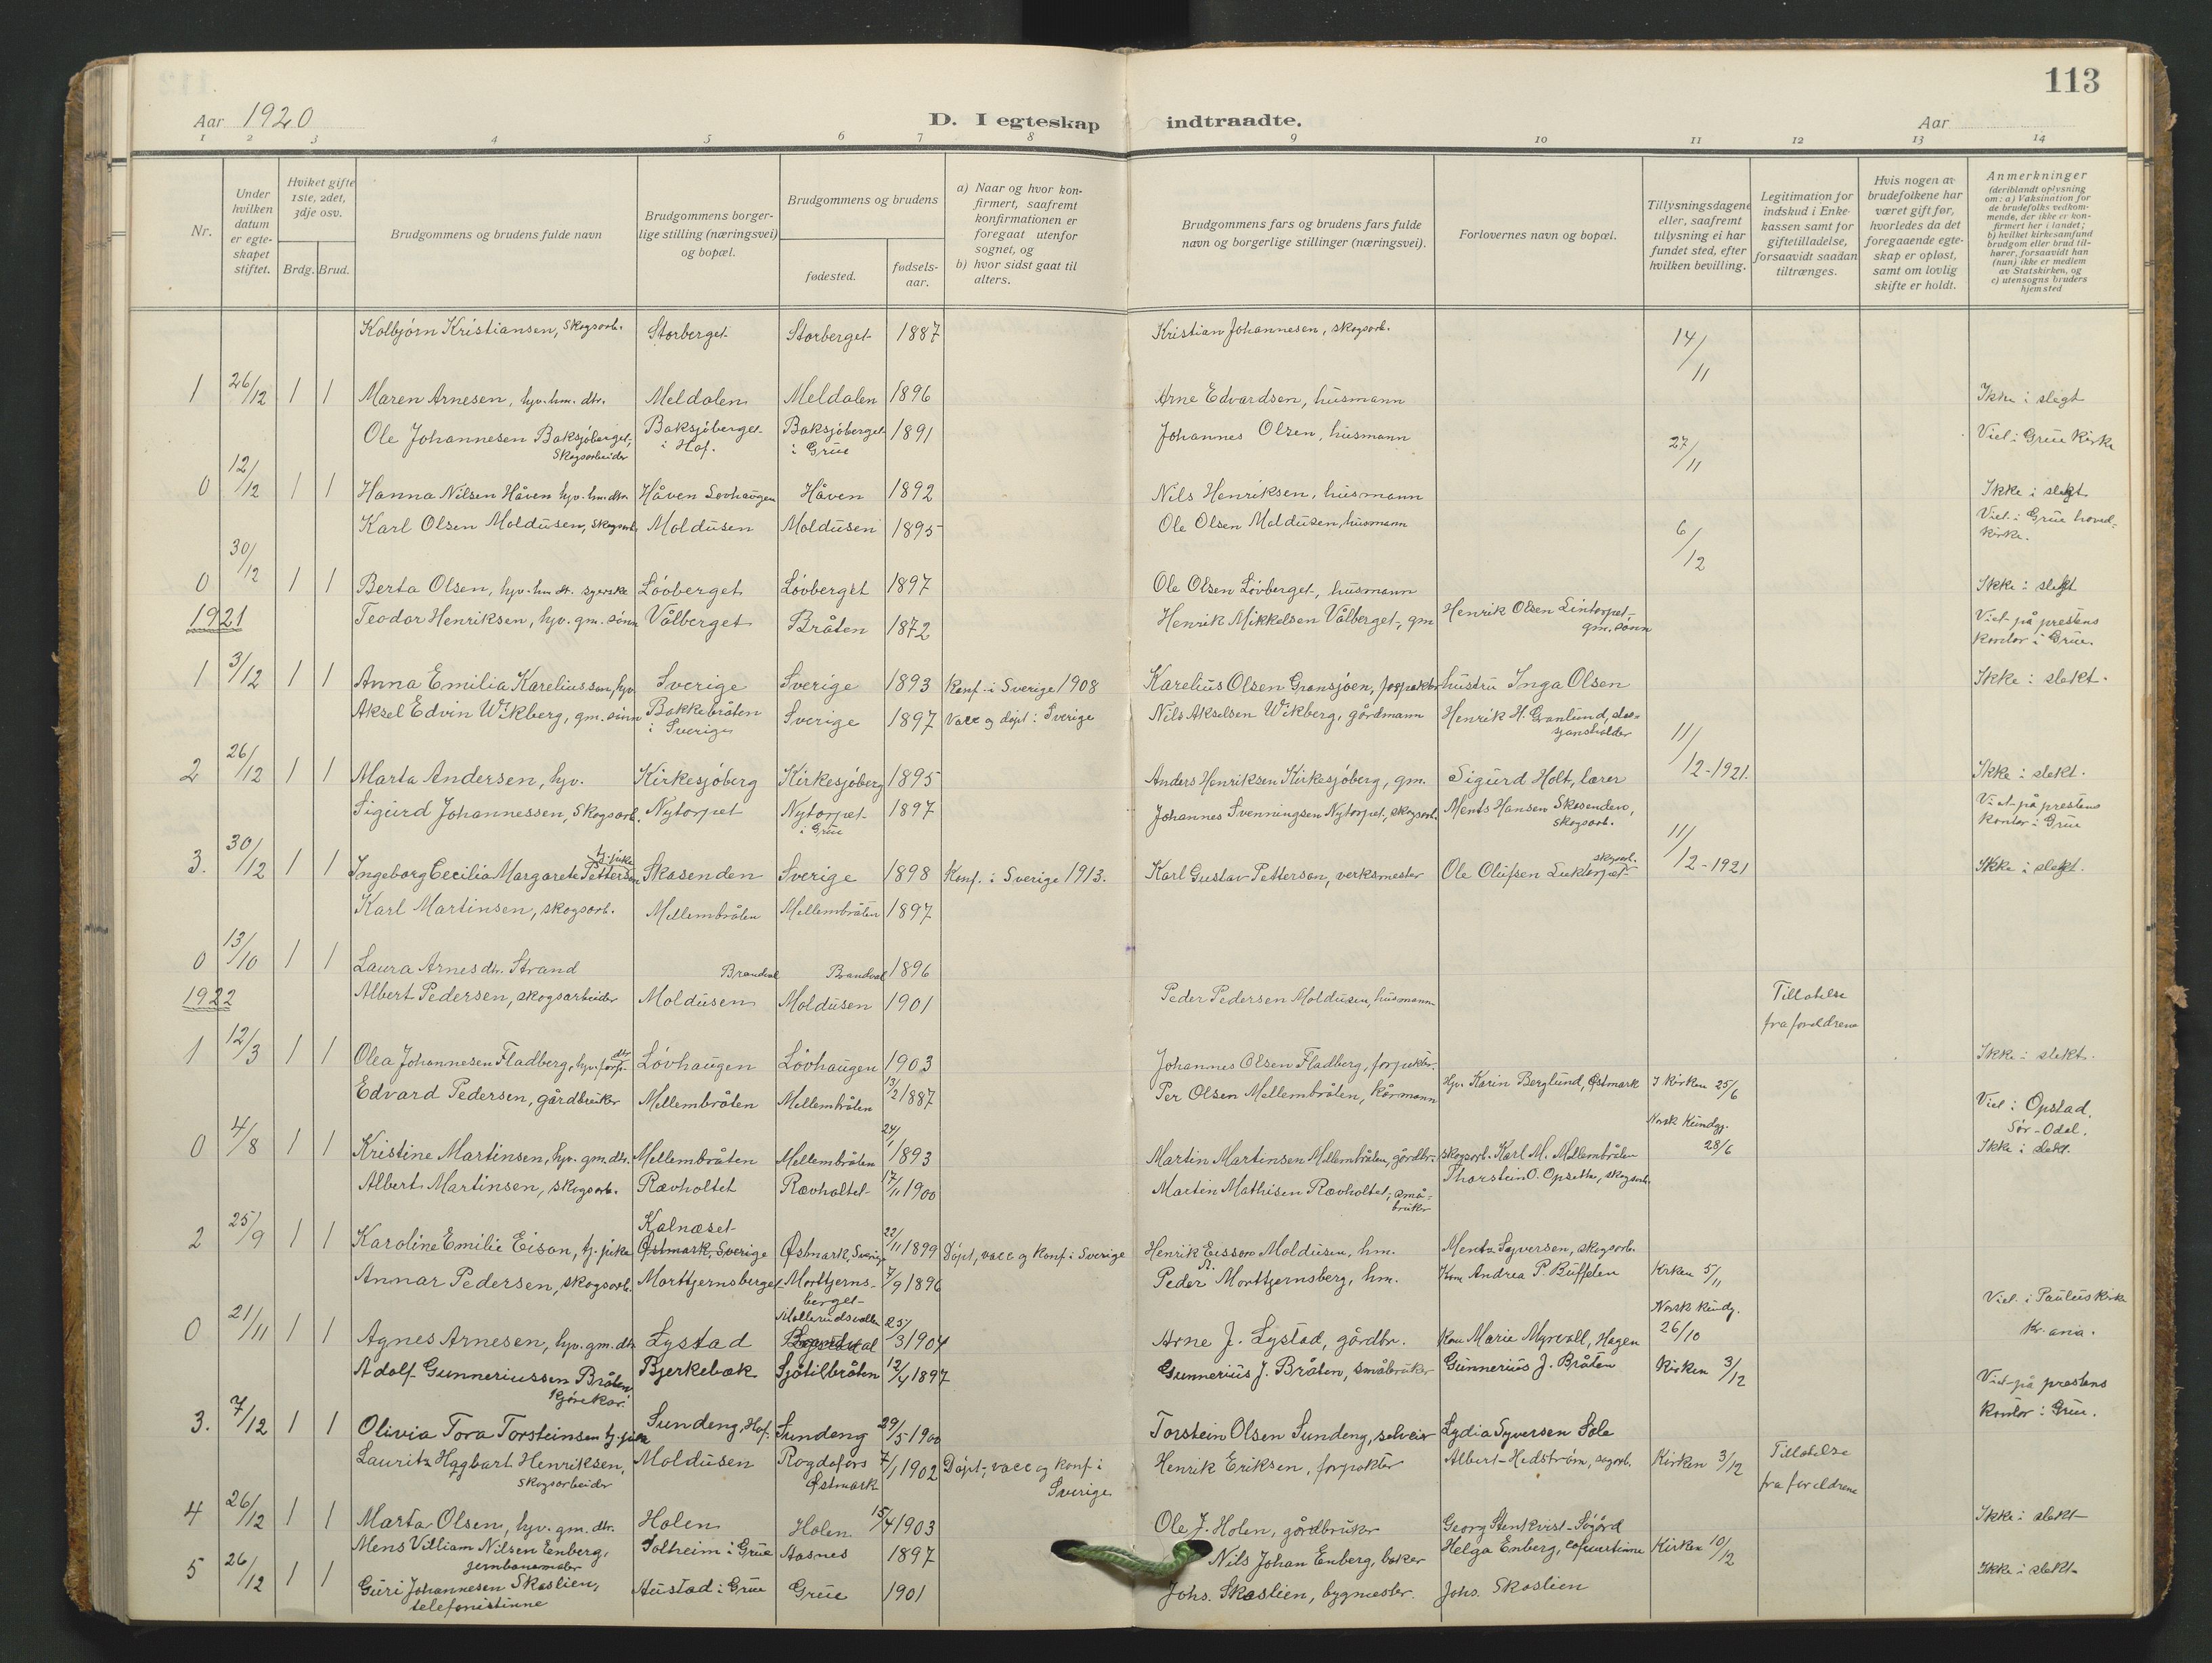 113
Aar 1920
D. I egteskap indtraadte.
Aar
1 2 3 4 5 6 7 8 9 10 11 12 13 14
Nr.
Under hvilken datum er egteskapet stiftet.
Hviket gifte 1ste, 2det, 3dje osv.
Brdg. Brud.
Brudgommens og brudens fulde navn
Brudgommens borgerlige stilling (næringsvei) og bopæl.
Brudgommens og brudens
fødested.
fødselsaar.
a) Naar og hvor konfirmert, saafremt konfirmationen er foregaat utenfor sognet, og
b) hvor sidst gaat til alters.
Brudgommens fars og brudens fars fulde navn og borgerlige stillinger (næringsvei).
Forlovernes navn og bopæl.
Tillysningsdagene eller, saafremt tillysning ei har fundet sted, efter hvilken bevilling.
Legitimation for indskud i Enkekassen samt for giftetilladelse, forsaavidt saadan tiltrænges.
Hvis nogen av brudefolkene har været gift før, hvorledes da det foregaaende egteskap er opløst, samt om lovlig skifte er holdt.
Anmerkninger (deriblandt oplysning om: a) Vaksination for de brudefolks vedkommende, der ikke er konfirmert her i landet; b) hvilket kirkesamfund brudgom eller brud tilhører, forsaavidt han (hun) ikke er medlem av Statskirken, og c) utensogns bruders hjemsted
Kolbjörn Kristiansen, Skogsarb. Storberget Storberget 1887 Kristian Johannesen, skogsarb. 14/11
1 26/12 1 1 Maren Arnesen, hjv. hm. dtr. Meldalen Meldalen 1896 Arne Edvardsen, husmann Ikke i slegt
Ole Johannesen Baksjöberget, Skogsarbeider Baksjöberget i Hof. Baksjöberget i Grue 1891 Johannes Olsen, husmann 27/11 Viet i Grue Kirke
0 12/12 1 1 Hanna Nilsen Håven hjv. hm. dtr. Håven Lovhaugen Håven 1892 Nils Henriksen, husmann Ikke i slekt
Karl Olsen Moldusen, Skogsarb. Moldusen Moldusen 1895 Ole Olsen Moldusen, husmann 6/12 Viet i Grue hovedkirke.
0 30/12 1 1 Berta Olsen, hjv. hm dtr. syerske Lövberget Lövberget 1897 Ole Olsen Lövberget, husmann Ikke i slekt
1921 Teodor Henriksen, hjv. gm. sönn Vålberget Bråten 1872 Henrik Mikkelsen Vålberget, gm Henrik Olsen Lintorpet gm. sönn Viet på prestens kontor i Grue.
1 3/12 1 1 Anna Emilia Kareliussen, hjv Sverige Sverige 1893 Konf. i Sverige 1908 Karelius Olsen Gransjöen, forpakter hustru Inga Olsen Ikke i slekt.
Aksel Edvin Wikberg, gm. sönn Bakkebråten i Sverige Sverige 1897 Vacc og döpt i Sverige Nils Akselsen Wikberg, gårdmann Henrik H. Granlund, 11/12-1921.
2 26/12 1 1 Marta Andersen, hjv. Kirkesjöberg Kirkesjöberg 1895 Anders Henriksen Kirkesjöberg, gm. Sigurd Holt, lærer Ikke i slekt.
Sigurd Johannessen, Skogsarb. Nytorpet Nytorpet i Grue 1897 Johannes Svenningsen Nytorpet, skogsarb. Ments Hansen Skasenden, skogsarb. 11/12-1921 Viet på prestens kontor i Grue
3. 30/12 1 1 Ingeborg Cecilia Margarete Pettersen tj. pike Skasenden Sverige 1898 Konf. i Sverige 1913. Karl Gustav Petterson, verksmester Ole Olufsen skogsarb. Ikke i slekt.
Karl Martinsen, skogsarb. Mellembråten Mellembråten 1897
0 13/10 1 1 Laura Arnes dtr. Strand Brandval Brandval 1896
1922 Albert Pedersen, skogsarbeider Moldusen Moldusen 1901 Peder Pedersen Moldusen, husmann Tillatelse fra foreldrene
1 12/3 1 1 Olea Johannesen Fladberg, hjv. forp. dtr Lövhaugen Lövhaugen 1903 Johannes Olsen Fladberg, forpakter. Ikke i slekt.
Edvard Pedersen, gårdbruker Mellembråten Mellembråten 13/2 1887 Per Olsen Mellembråten, kårmann Hjv. Karin Berglund, Østmark I Kirken 25/6 Viet i Opstad, Sör-Odal.
0 4/8 1 1 Kristine Martinsen, hjv. gm. dtr. Mellembråten Mellembråten 24/1 1893 Martin Martinsen Mellembråten, gårdbr. skogsarb. Karl M. Mellembråten Norsk Kundgj. 28/6 Ikke i slekt.
Albert Martinsen, skogsarb. Rævholtet Rævholtet 17/11 1900 Martin Mathisen Rævholtet, småbruker Thorstein O. Opseth, skogsarb.
2 25/9 1 1 Karoline Emilie Eison, tj. pike Kalnæset Østmark, Sverige Østmark, Sverige 22/11 1899 Döpt, vacc og konf i Sverige Henrik Eisson Moldusen, hm. Ments Syversen, skogsarb.
Annar Pedersen, skogsarb. Morttjernsberget Morttjernsberget 7/9 1896 Peder A. Morttjernsberg, hm. Andrea P. Buffelen Kirken 5/11 Viet i Paulus Kirke Kr. ania.
0 21/11 1 1 Agnes Arnesen, hjv. gm. dtr Lystad Møllerudsvollen 25/3 1904 Arne J. Lystad, gårdbr. Marie Myrvoll, Hagen Norsk kundg. 26/10
Adolf Gunneriussen Bråten, Kjörekar. Bjerkebæk Sjötilbråten 12/4 1897 Gunnerius J. Bråten, småbruker Gunnerius J. Bråten Kirken 3/12 Viet på prestens kontor i Grue.
3. 7/12 1 1 Olivia Tora Torsteinsen tj. pike Sundeng, Hof. Sundeng 29/5 1900 Torstein Olsen Sundeng, selveier Lydia Syversen Sole
Lauritz Hagbart Henriksen, skogsarbeider Moldusen Rogdofors Østmark 7/1 1902 Döpt, vacc og konf i Sverige Henrik Eriksen, forpakter Albert Hedström, sagarb. Kirken 3/12 Tillatelse fra foreldrene
4 26/12 1 1 Marta Olsen, hjv. gm. dtr. Holen Holen 15/4 1903 Ole J. Holen, gårdbruker Georg Stenkvist Ikke i slekt
Mens Villiam Nilsen Enberg, Solheim i Grue Aasnes 1897 Nils Johan Enberg, baker Helga Enberg, Kirken 10/12
5 26/12 1 1 Guri Johannesen Skaslien, telefonistinne Austad i Grue Grue 1901 Johs. Skaslien, bygmester. Johs. Skaslien Ikke i slekt